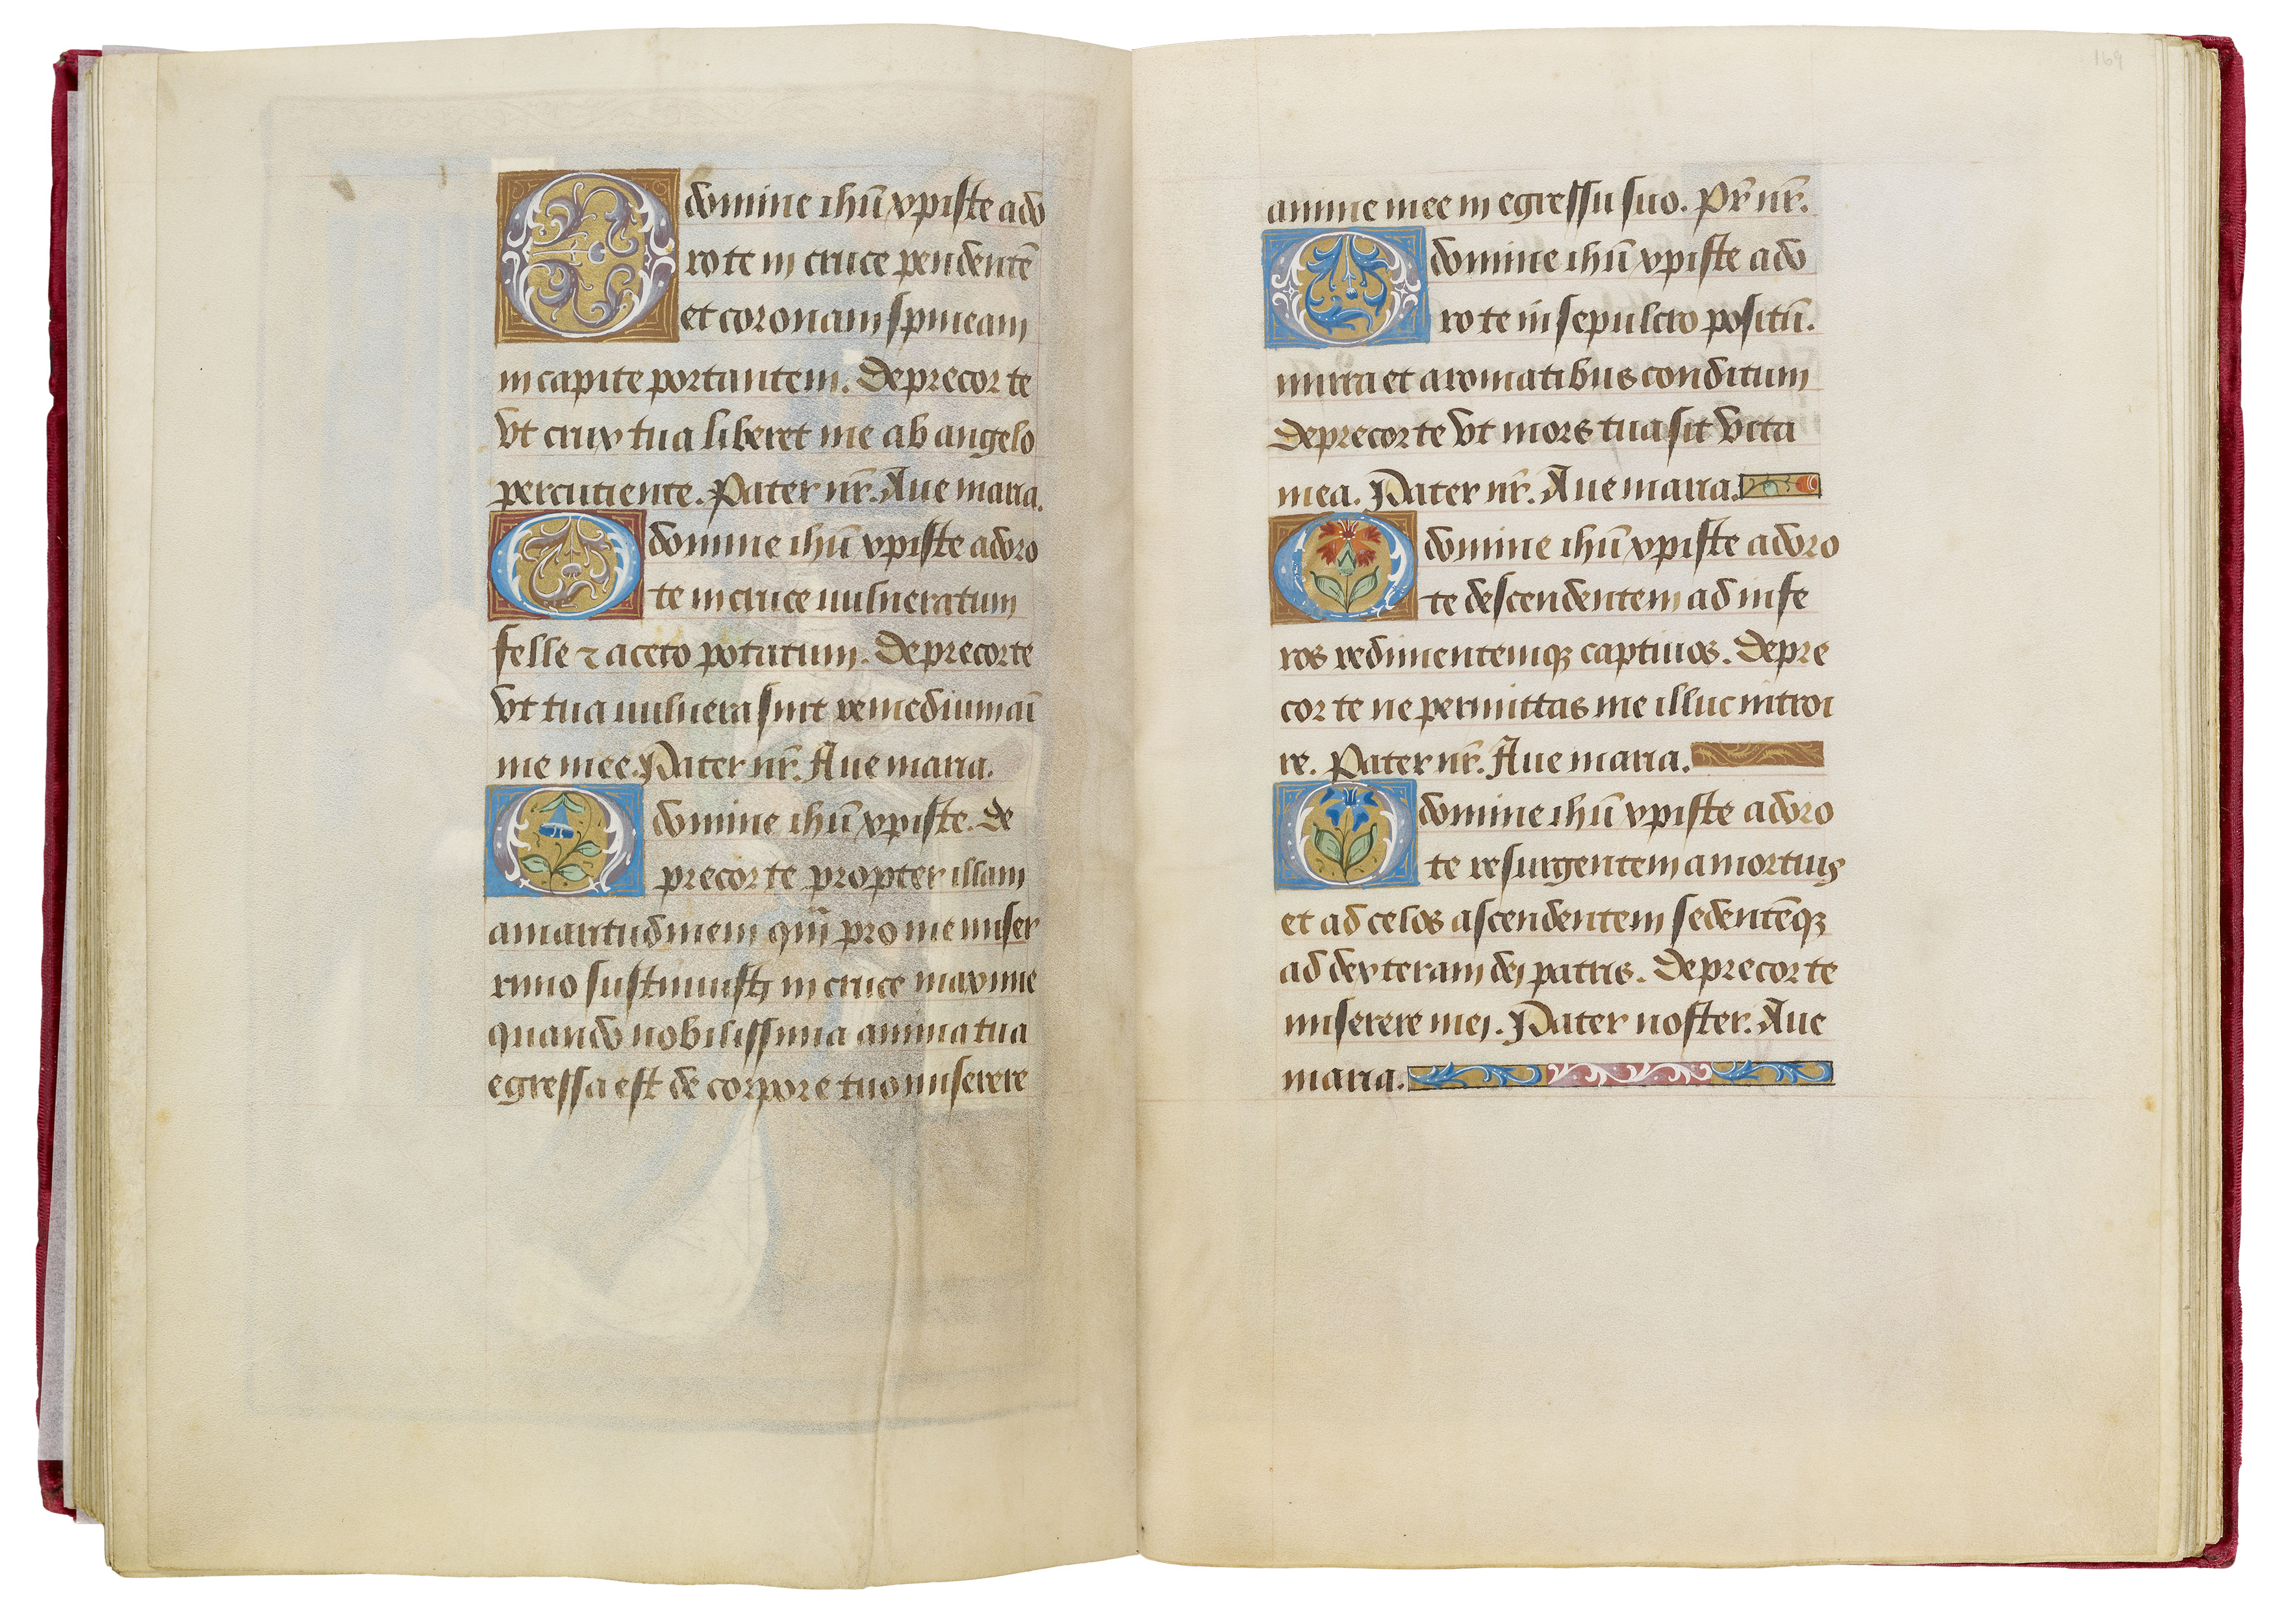 O domine ihū xpiste ado
ro te in cruce pendentē
et coronam spineam
in capite portantem. Deprecor te
vt crux tua liberet me ab angelo
percutiente. Pater nr̄. Aue maria.
O domine ihū xpiste adoro
te in cruce uulneratum
felle ⁊ aceto potatum. Deprecor te
vt tua uulnera sint remedium aī
me mee. Pater nr̄. Aue maria.
O domine ihū xpiste. De
precor te propter illam
amaritudinem quā pro me miser
rimo sustinuisti in cruce maxime
quando nobilissima anima tua
egressa est de corpore tuo miserere
169
anime mee in egressu suo. Pr̄ nr̄.
O domine ihū xpiste ado
ro te in sepulcro positū.
mirra et aromatibus conditum
Deprecor te vt mors tua sit vita
mea. Pater nr̄. Aue maria.
O domine ihū xpiste adoro
te descendentem ad infe
ros redimentemqꝫ captiuos. Depre
cor te ne permittas me illuc introi
re. Pater nr̄. Aue maria.
O domine ihū xpiste adoro
te resurgentem a mortuis
et ad celos ascendentem sedentēqꝫ
ad dexteram dei patris. Deprecor te
miserere mei. Pater noster. Aue
maria.